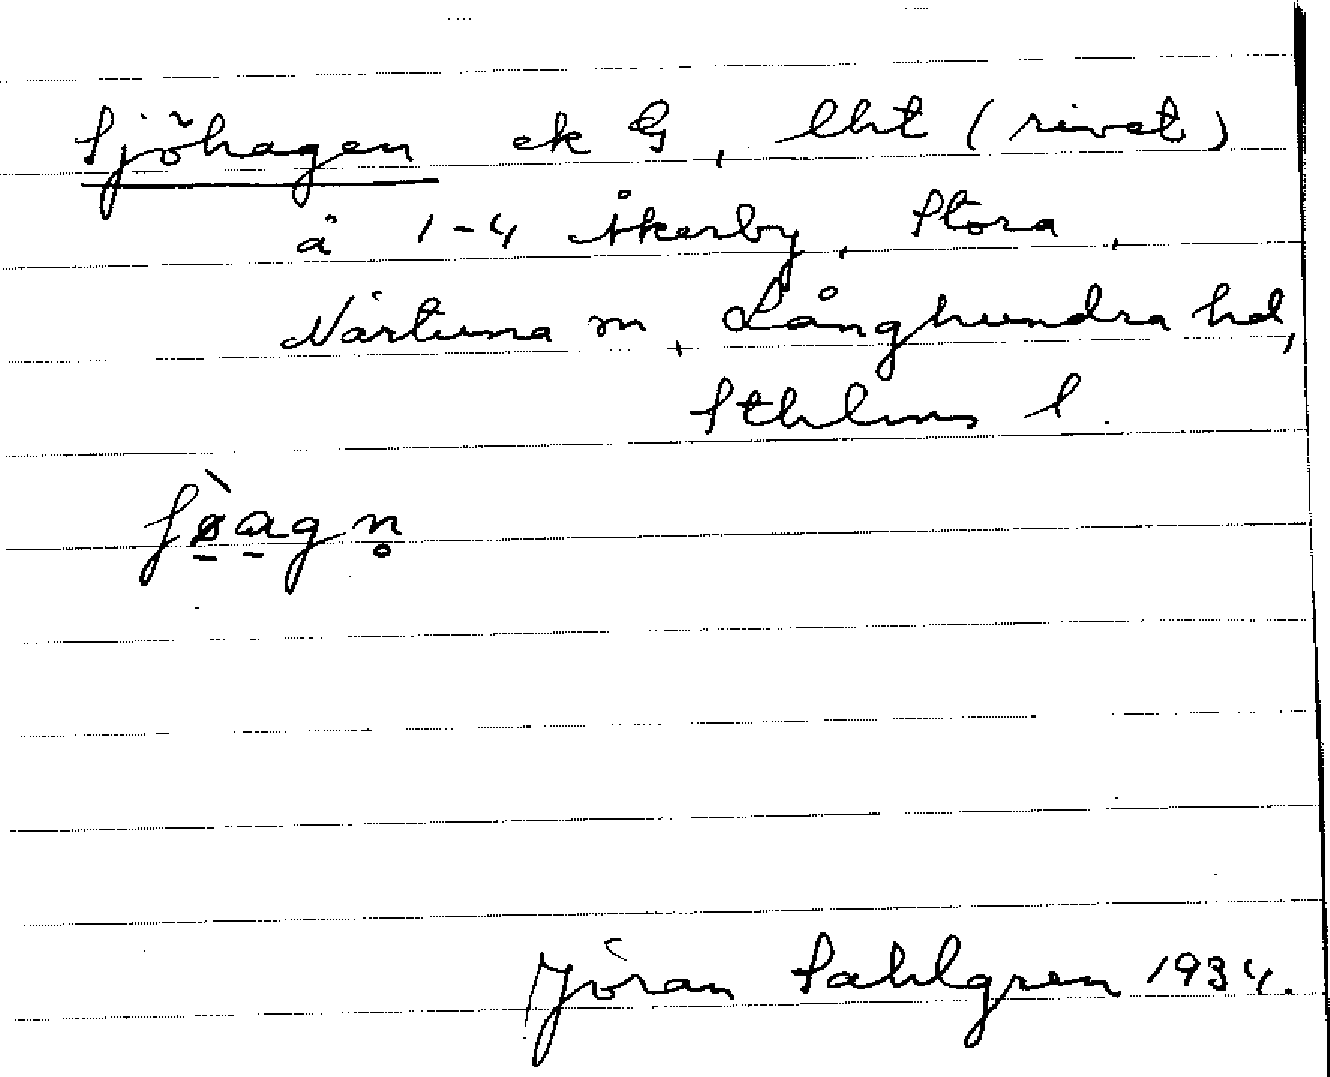 Sjöhagen ek G, lht (rivet)
å 1-4 Åkerby, Stora,
Närtuna sn, Långhundra hd,
Sthlms l.
Jöran Sahlgren 1934.